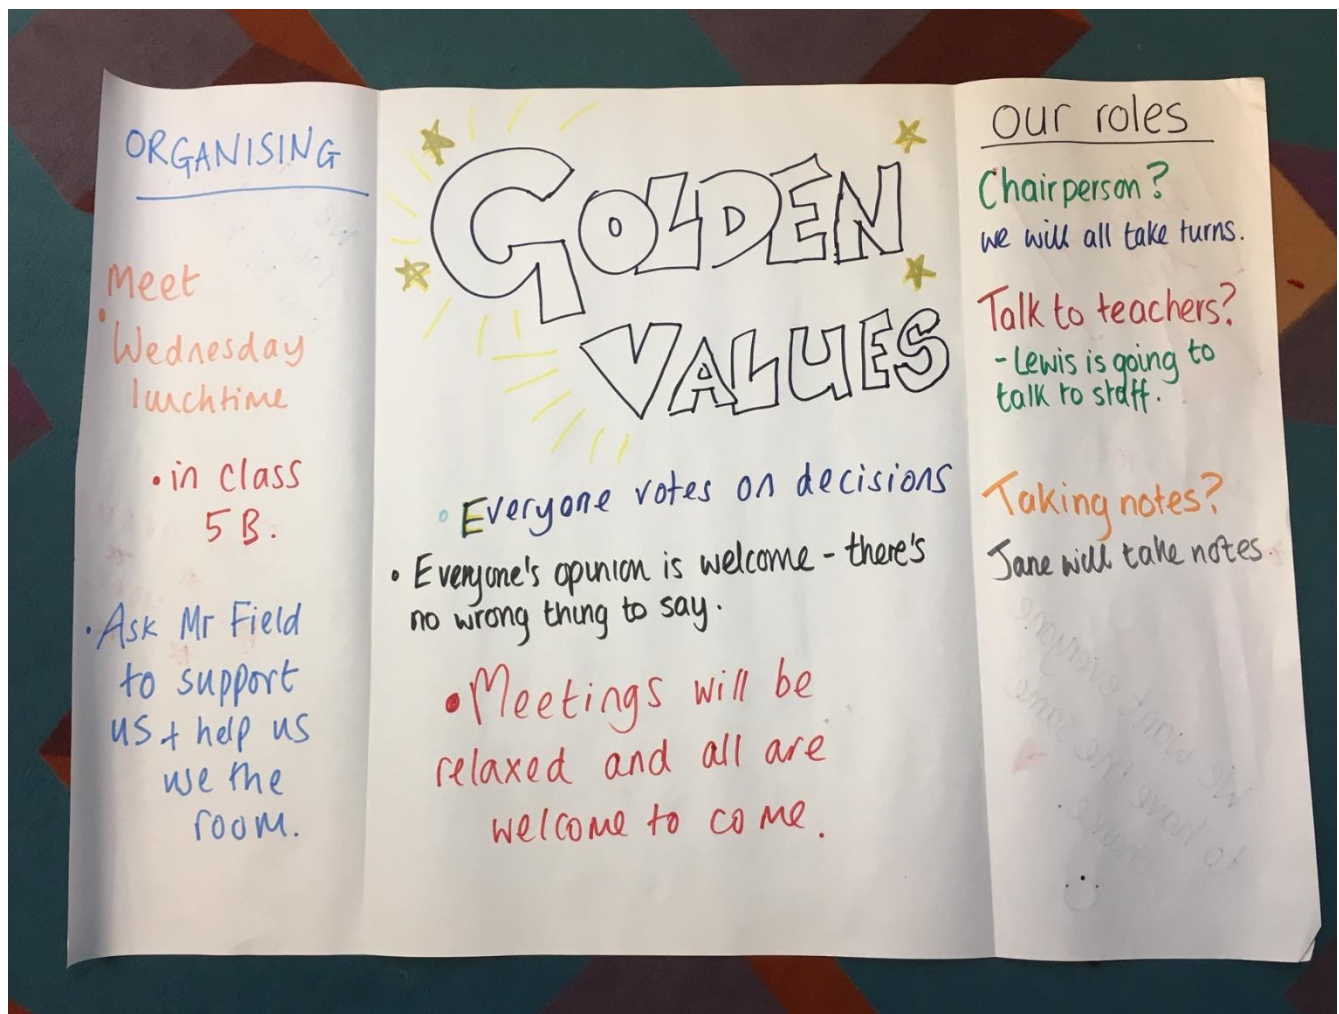 ORGANISING
Meet
• Wednesday
lunchtime
• in class
5B.
• Ask Mr Field
to support
us + help us
use the
room.
GOLDEN
VALUES
• Everyone votes on decisions
• Everyone's opinion is welcome - there's
no wrong thing to say.
• Meetings will be
relaxed and all are
welcome to come.
our roles
Chairperson?
we will all take turns.
Talk to teachers?
- Lewis is going to
talk to staff.
Taking notes?
Jane will take notes.
We want everyone
to have the same